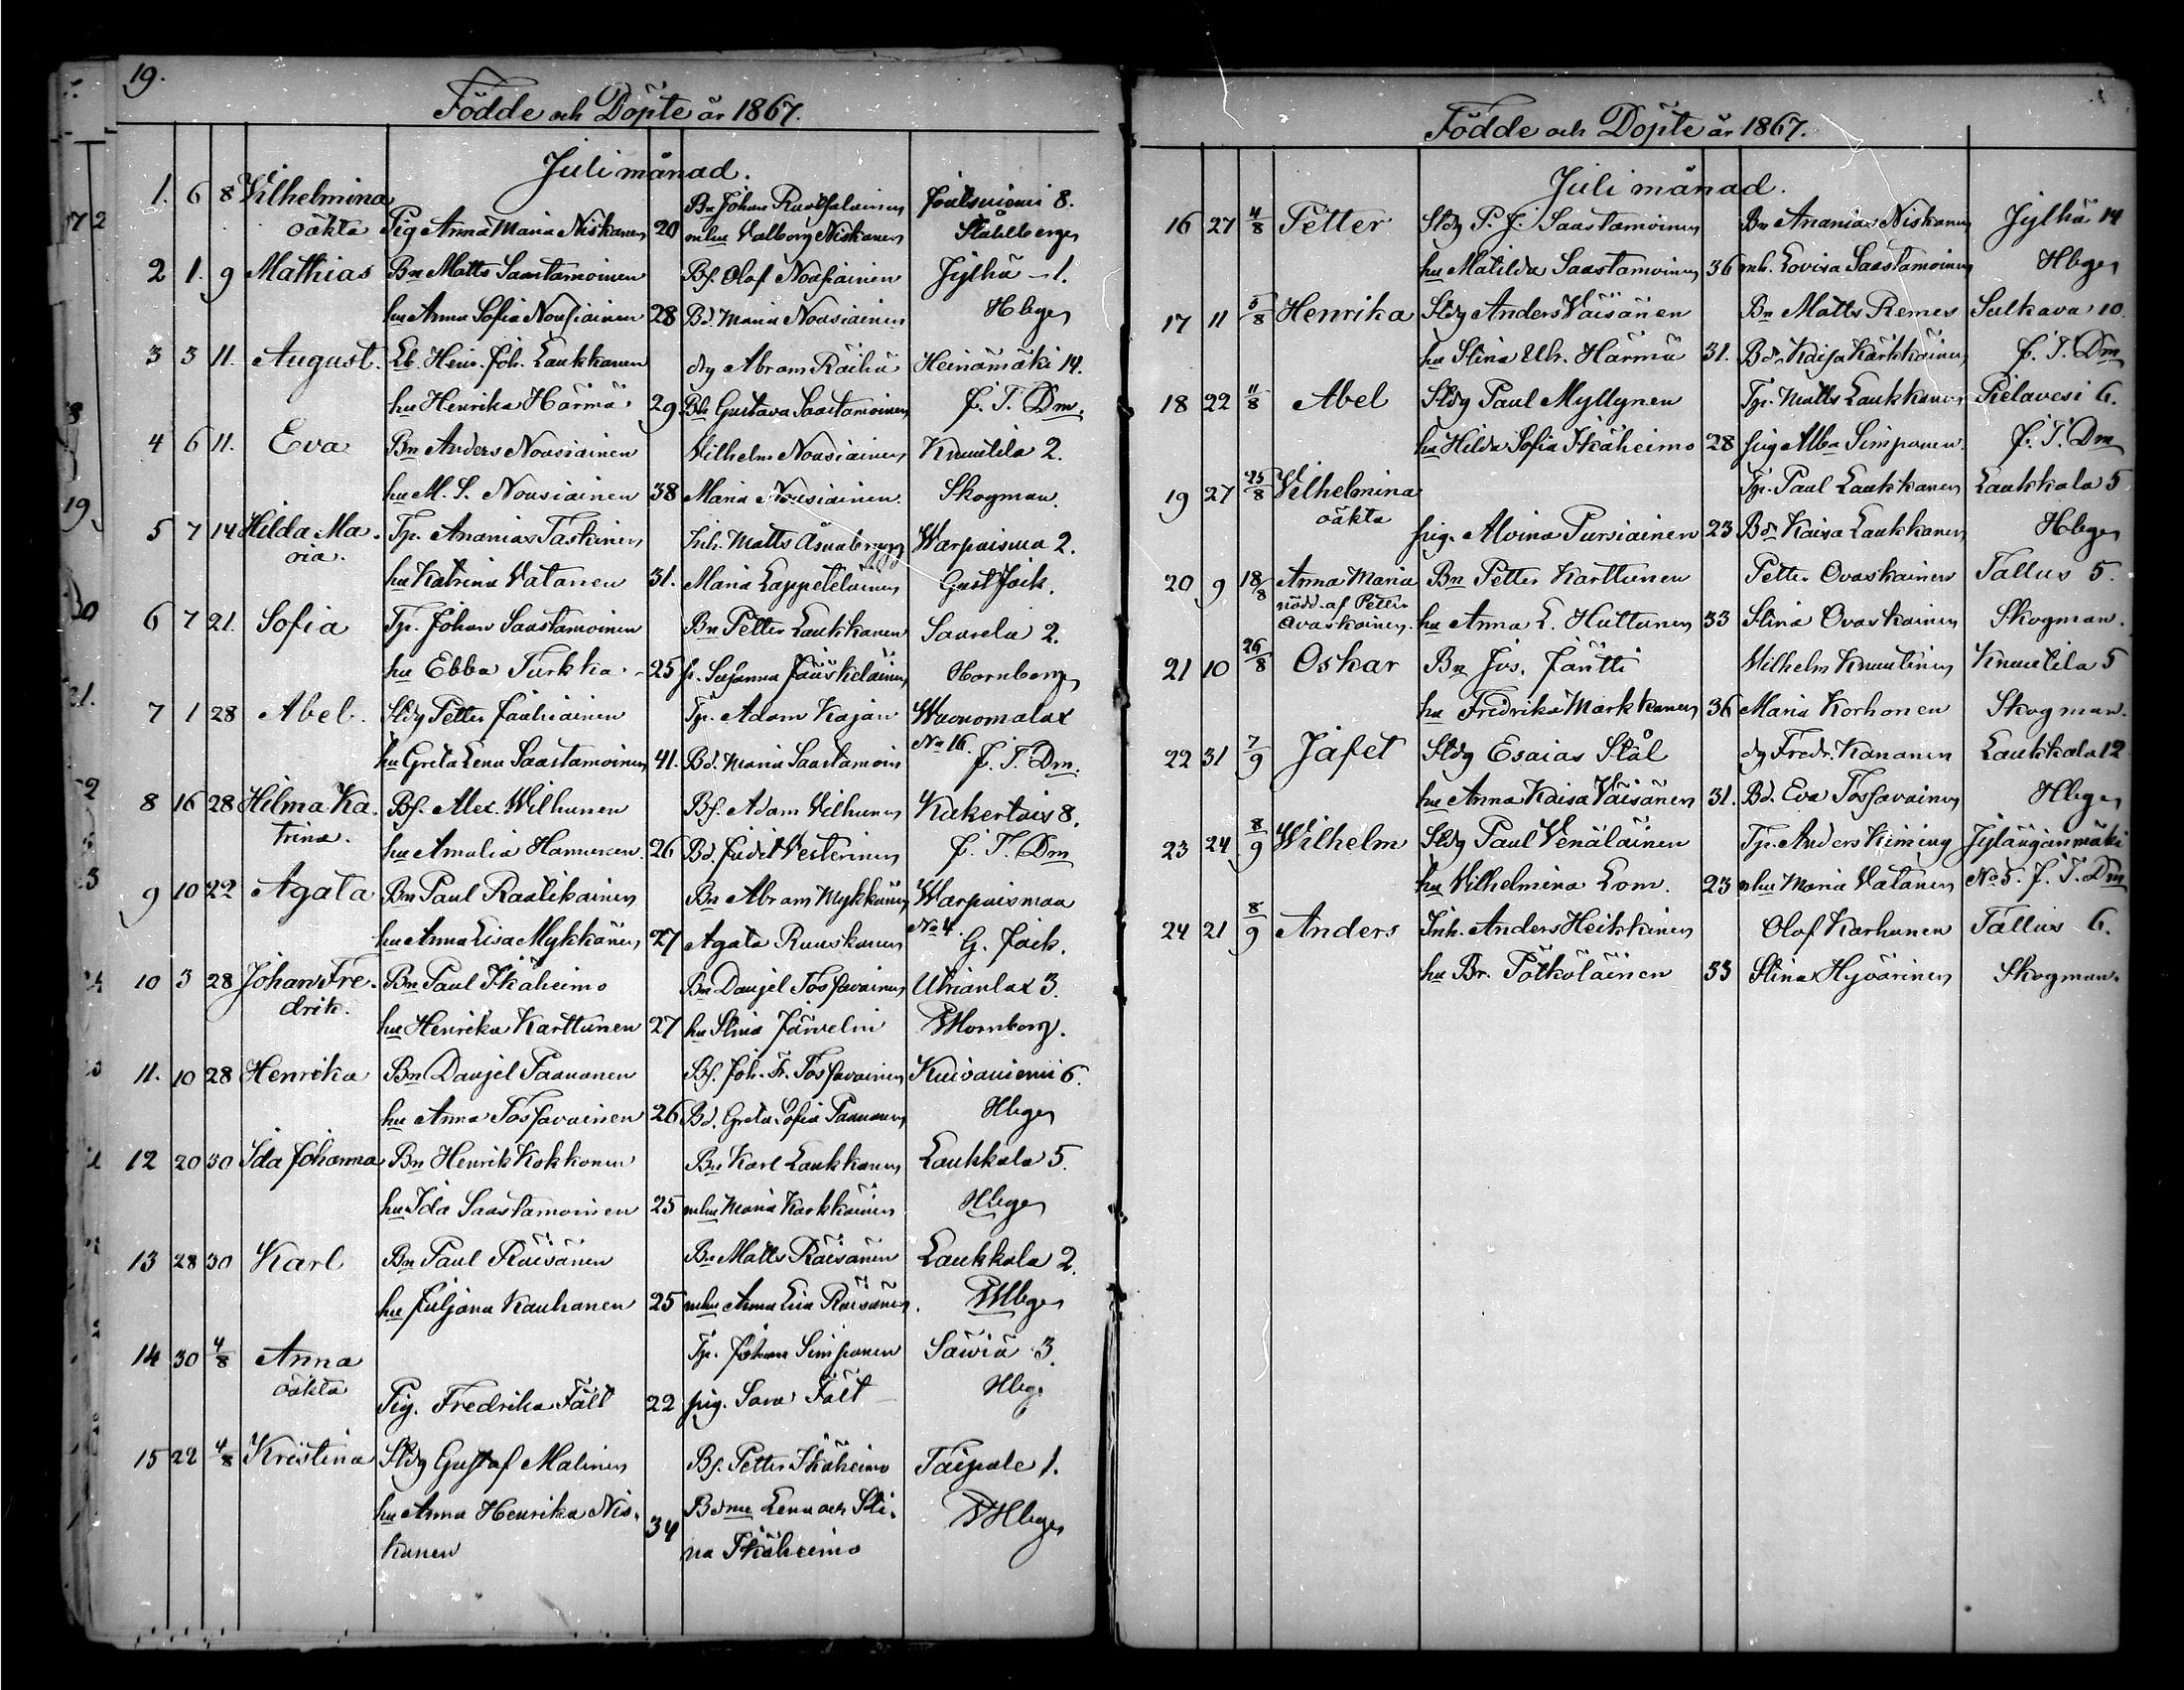 19.
Födde och Döpte år 1867.
Juli månad.
1. 6 8 Vilhelmina Bn Johan 8.
oäkta Pig Anna Maria Niskanen 20 mhu Valborg Niskanen Ståhlberg
2 1. 9 Mathias Bn Matts Saastamoinen Bf. Olof Nousiainen Jylhä 1.
hu Anna Sofia Nousiainen 28 Bd. Maria Nousiainen Hbeg
3 3 11. August. Lb. Heinr. Joh. Laukkanen dg Abram Räihä Heinämäki 14.
hu Henrika Härmä 29 Bdr Gustava Saastamoinen J. T. Dm.
4 6 11. Eva Bn Anders Nousiainen Vilhelm Nousiainen Knuutila 2.
hu M. S. Nousiainen 38 Maria Nousiainen. Skogman.
5 7 14 Hilda Ma- Tp. Ananias Taskinen Inh. Matts Warpaismaa 2.
ria. hu Katrina Vatanen 31. Maria Lappeteläinen Gust Jäck.
6 7 21. Sofia Tp. Johan Saastamoinen Bn Petter Laukkanen Saarela 2.
hu Ebba Turkka 25 p. Susanna Jääskeläinen Hornborg
7 1 28 Abel. Sldg Petter Jauhiainen Tp. Adam Kajan Wuonomalax
hu Greta Lena Saastamoinen 41. Bd. Maria Saastamoin No 16. J. T. Dm.
8 16 28 Hilma Ka- Bf. Alex. Wilhunen Bf. Adam Vilhunen Kukertais 8.
trina. hu Amalia Hamunen. 26 Bd. Judit Vesterinen J. T. Dm
9 10 22 Agata Bn Paul Raatikainen Bn Abram Mykkänen Warpaismaa
hu Anna Lisa Mykkänen 27 Agata Ruuskanen No 4. G. Jäck.
10 3 28 Johan Fre- Bn Paul Ikäheimo Bn Danjel Tossavainen Utrianlax 3.
drik. hu Henrika Karttunen 27 hu Stina Järvelin Hornborg.
11. 10 28 Henrika Bn Danjel Paananen Bf. Joh. Fr. Tossavainen Kuivaniemi 6.
hu Anna Tossavainen 26 Bd. Greta Sofia Paananen Hbeg
12 20 30 Ida Johanna Bn Henrik Kokkonen Bn Karl Laukkanen Laukkala 5.
hu Ida Saastamoinen 25 mhu Maria Karkkainen Hbeg
13 28 30 Karl Bn Paul Räisänen Bn Matts Räisänen Laukkala 2.
hu Juljana Kauhanen 25 mhu Anna Lisa Räisänen. Hbeg
14 30 4/8 Anna Tp. Johan Simpanen Säviä 3.
oäkta Pig. Fredrika Fält 22 pig. Sara Fält Hbeg.
15 22 4/8 Kristina Sldg Gustaf Malinen Bf. Petter Ikäheimo Taipale 1.
hu Anna Henrika Nis- 34 Bdrne Lena och Sti- Hbeg
kanen na Ikäheimo
Födde och Döpte år 1867.
Juli månad.
16 27 4/8 Petter Sldg P. J. Saastamoinen Bn Ananias Niskanen Jylhä 14
hu Matilda Saastamoinen 36 mh. Lovisa Saastamoinen Hbeg
17 11 5/8 Henrika Sldg Anders Väisänen Bn Matts Remes Sulkava 10.
hu Stina Ulr. Härmä 31. Bdr Kaisa Kärkkäinen J. T. Dm
18 22 11/8 Abel Sldg Paul Myllynen Tp. Matts Laukkanen Pielavesi 6.
hu Hilda Sofia Ikäheimo 28 pig Alba Simpanen. J. T. Dm
19 27 25/8 Vilhelmina Tp. Paul Laukkanen Laukkala 5
oäkta pig. Alvina Pursiainen 23 Bdr Kaisa Laukkanen Hbeg
20 9 18/8 Anna Maria Bn Petter Karttunen Petter Ovaskainen Tallus 5.
nödd. af Petter
Ovaskainen. hu Anna L. Huttunen 33 Stina Ovaskainen Skogman.
21 10 26/8 Oskar Bn Jos. Jäntti Vilhelm Knuutinen Knuutila 5
hu Fredrika Markkanen 36 Maria Korhonen Skogman.
22 31 7/9 Jafet Sldg Esaias Stål dg Fredr. Kananen Laukkala 12
hu Anna Kaisa Väisänen 31. Bd. Eva Tossavainen Hbeg
23 24 8/9 Wilhelm Sldg Paul Venäläinen Tp. Anders Kiming Jylänganmäki
hu Vilhelmina Lom. 23 mhu Maria Vatanen No 5. J. T. Dm
24 21 8/9 Anders Inh. Anders Heikkinen Olof Karhunen Tallus 6.
hu Br. Pölkoläinen 33 Stina Hyvärinen Skogman.